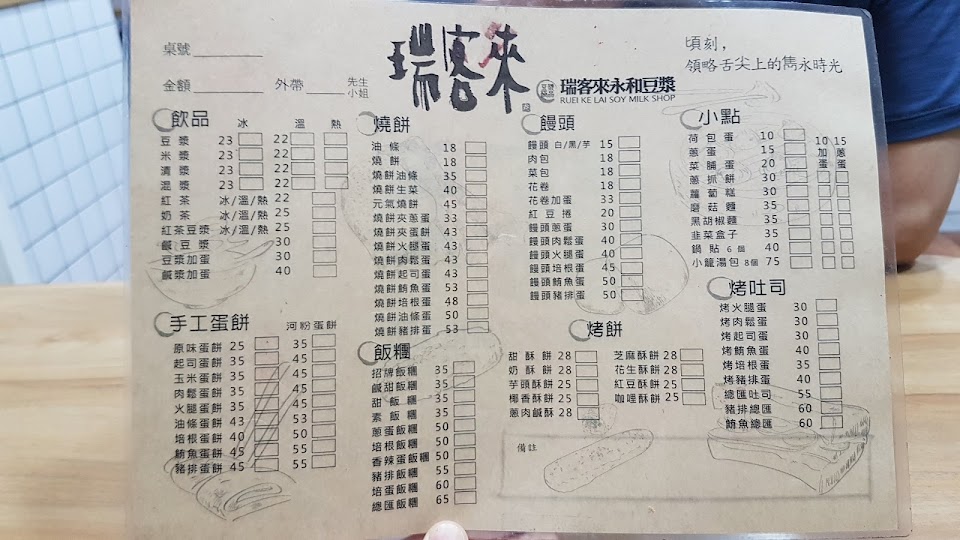 桌號
金額 外帶 先生 小姐
瑞客來
瑞客來永和豆漿
RUEI KE LAI SOY MILK SHOP
頃刻,
領略舌尖上的雋永時光
飲品 冰 溫 熱
豆漿 23 22
米漿 23 22
清漿 23 22
混漿 23 22
紅茶 冰/溫/熱 22
奶茶 冰/溫/熱 25
紅茶豆漿 冰/溫/熱 25
鹹豆漿 30
豆漿加蛋 30
鹹漿加蛋 40
手工蛋餅 河粉蛋餅
原味蛋餅 25 35
起司蛋餅 35 45
玉米蛋餅 35 45
肉鬆蛋餅 35 45
火腿蛋餅 35 45
油條蛋餅 43 53
培根蛋餅 40 50
鮪魚蛋餅 45 55
豬排蛋餅 45 55
燒餅
油條 18
燒餅 18
燒餅油條 35
燒餅生菜 40
元氣燒餅 45
燒餅夾蔥蛋 33
燒餅夾蛋餅 43
燒餅火腿蛋 43
燒餅肉鬆蛋 43
燒餅起司蛋 43
燒餅鮪魚蛋 53
燒餅培根蛋 48
燒餅油條蛋 50
燒餅豬排蛋 53
飯糰
招牌飯糰 35
鹹甜飯糰 35
甜飯糰 35
素飯糰 35
蔥蛋飯糰 50
培根飯糰 50
香辣蛋飯糰 50
豬排飯糰 55
培蛋飯糰 60
總匯飯糰 65
饅頭
饅頭 白/黑/芋 15
肉包 18
菜包 18
花卷 18
花卷加蛋 30
紅豆捲 20
饅頭蔥蛋 30
饅頭肉鬆蛋 40
饅頭火腿蛋 40
饅頭培根蛋 45
饅頭鮪魚蛋 50
饅頭豬排蛋 50
烤餅
甜酥餅 28 芝麻酥餅 28
奶酥餅 28 花生酥餅 28
芋頭酥餅 25 紅豆酥餅 25
椰香酥餅 25 咖哩酥餅 25
蔥肉鹹酥 28
備註
小點
荷包蛋 10 10 15
蔥蛋 15 加 蔥
菜脯蛋 20 蛋 蛋
蔥抓餅 30
蘿蔔糕 30
磨菇麵 35
黑胡椒麵 35
韭菜盒子 35
鍋貼 6個 40
小籠湯包 8個 75
烤吐司
烤火腿蛋 30
烤肉鬆蛋 30
烤起司蛋 30
烤鮪魚蛋 40
烤培根蛋 35
烤豬排蛋 40
總匯吐司 55
豬排總匯 60
鮪魚總匯 60